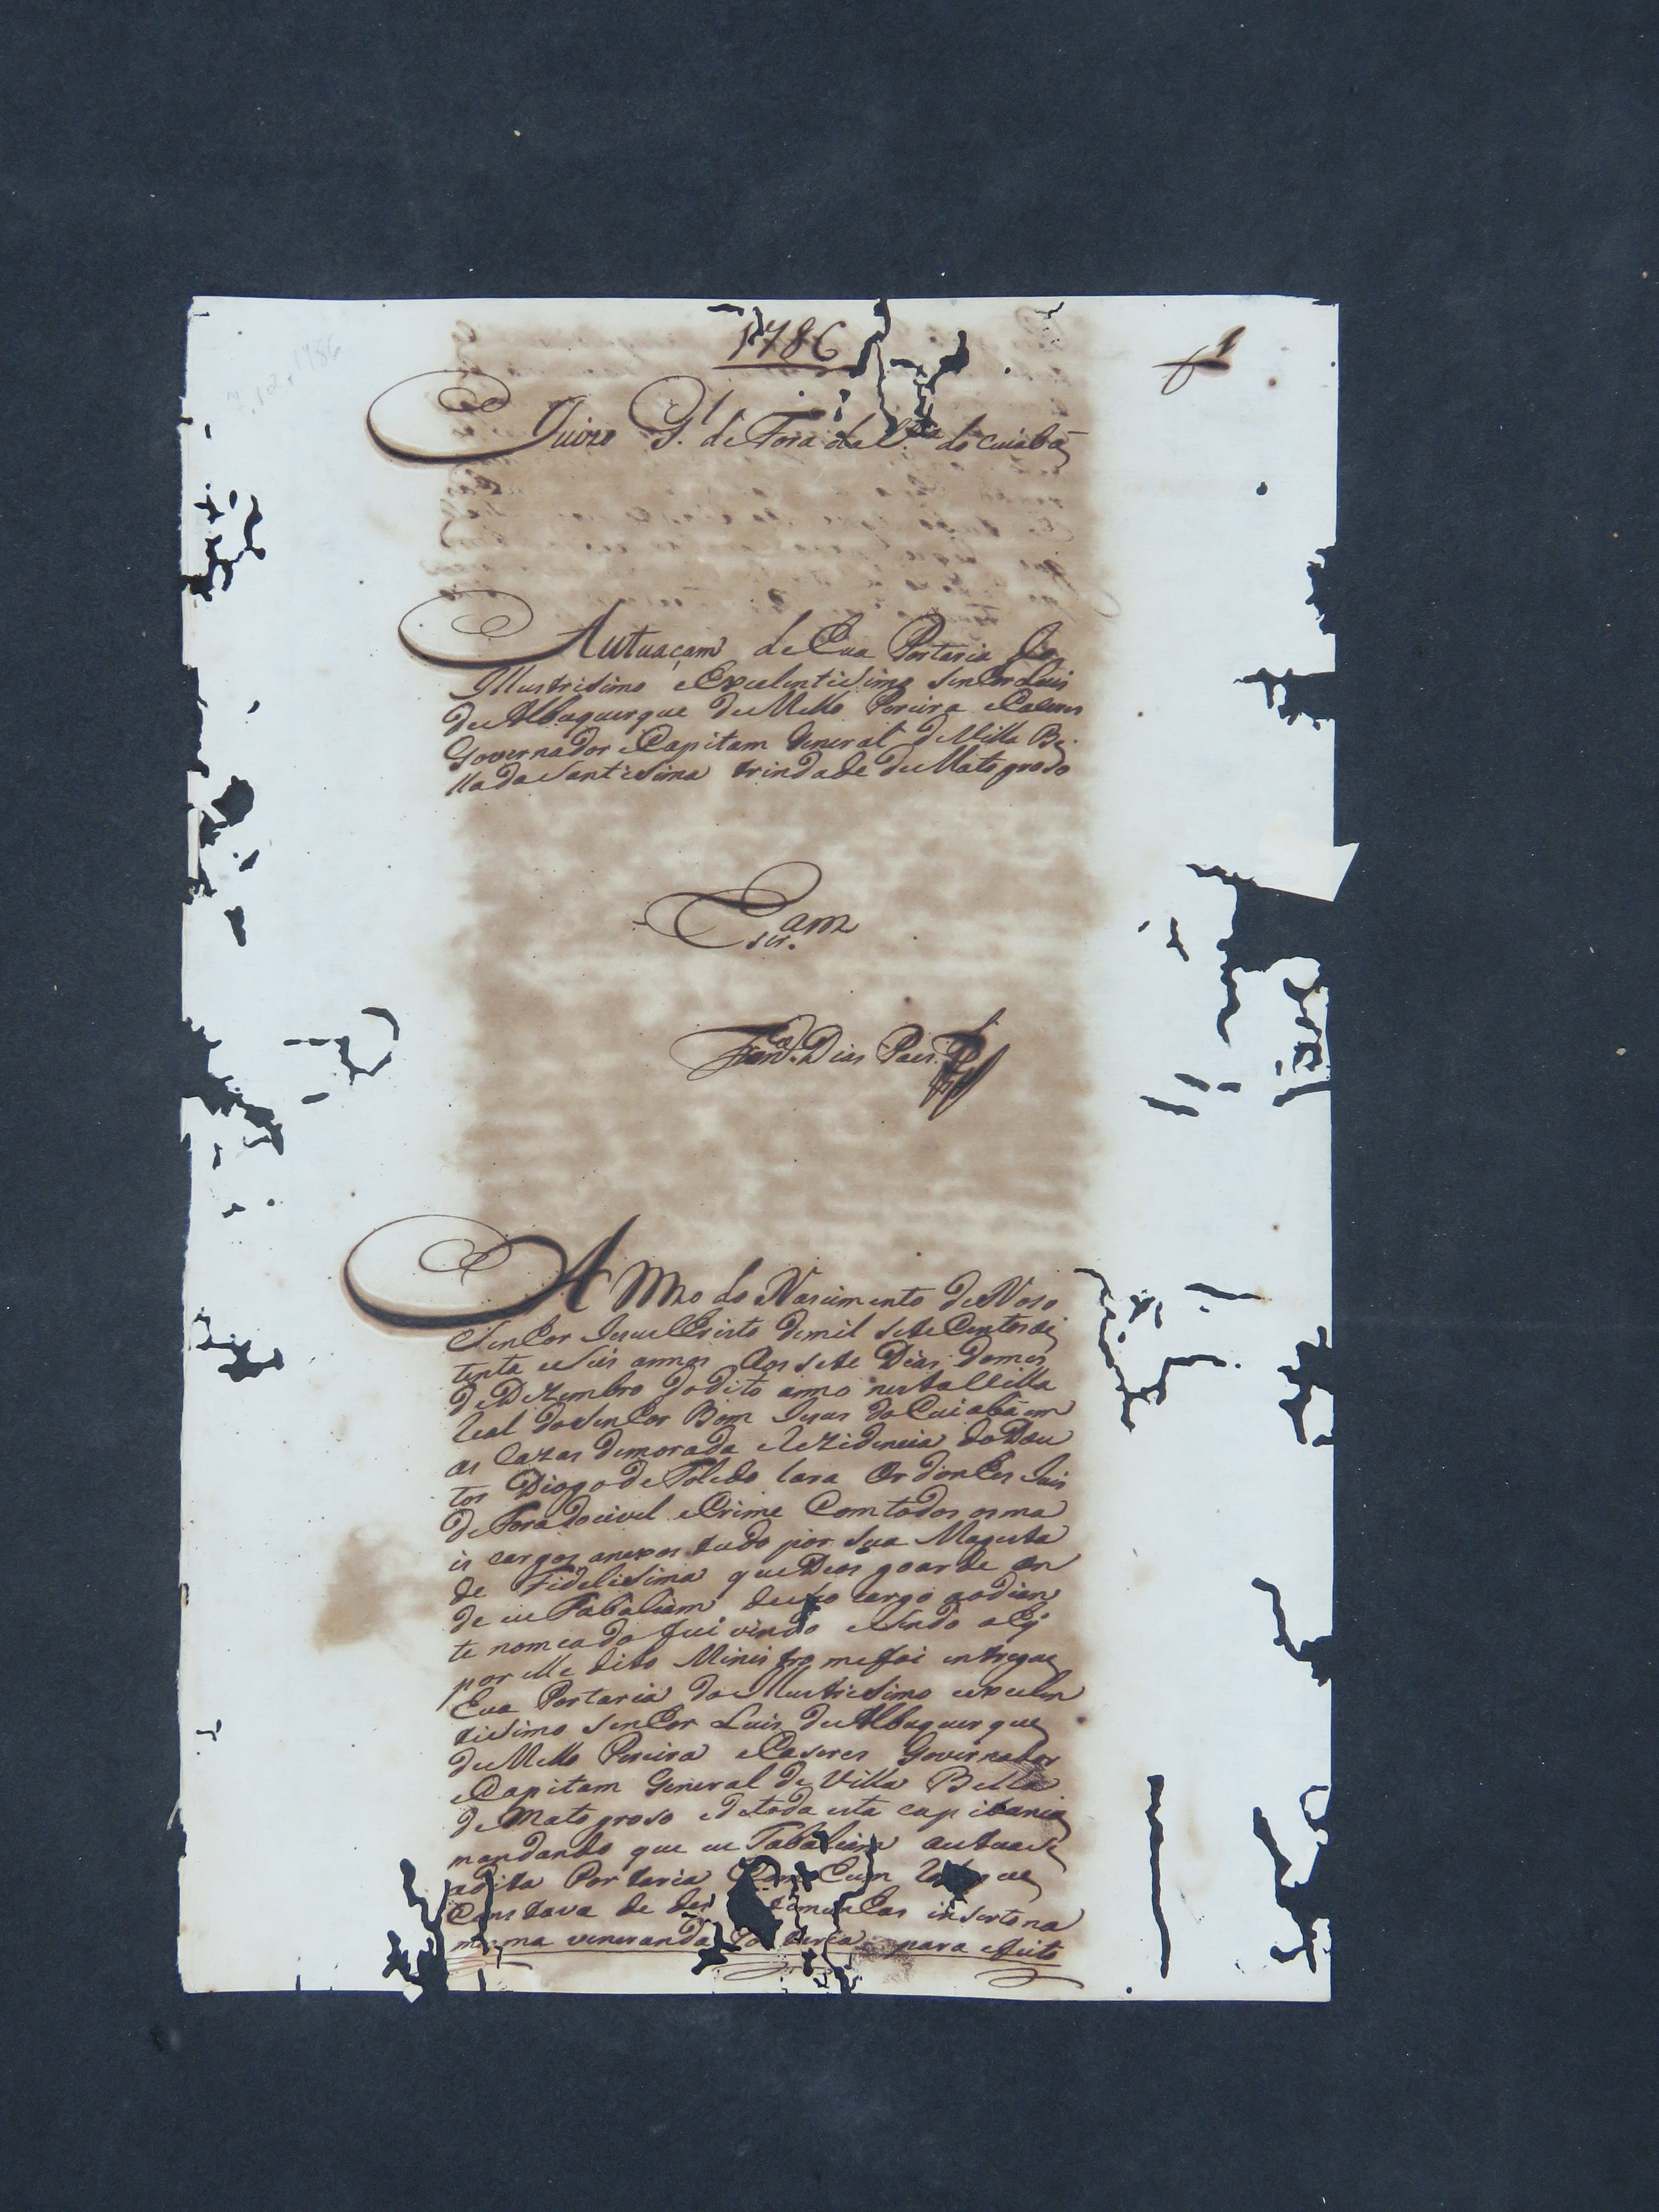 7.12.1786
1786
f 1
Juizo G.l de Fora da V.a do Cuiabá
Autuaçam de hua Portaria do
Illustrisimo eExcelentisimo Senhor Luis
de Albuquerque de Mello Pereira eCaseres
Governador eCapitam General de Villa Be
lla da Santisima trindade de Mato groso
Escr.am
Fern.do Dias Paes
Anno do Nascimento de Noso
Senhor Jesus Christo de mil sete Centos oi
tenta eSeis annos Aos sete Dias do mes
de Dezembro do dito anno nesta Villa
Real do Senhor Bom Jesus do Cuiabá em
as Cazas de morada eRezidencia do Dou
tor Diogo de Toledo Lara Ordonhes Juis
de Fora do civel eCrime Com todos os ma
is cargos anexos tudo por Sua Magesta
de Fidelisima que Deos goarde on
de eu Tabaliam de seo cargo aodian
te nomeado fui vindo eSendo ahy
por elle dito Ministro me foi entregue
hua Portaria do Illustrisimo eexcelen
tisimo Senhor Luis de Albuquerque
de Mello Pereira eCaseres Governador
eCapitam General de Villa Bella
de Mato groso ede toda esta capitania
mandando que eu Tabaliam autuase
adita Portaria Com hum
Constava de inserto na
mesma veneranda Portaria para efeito